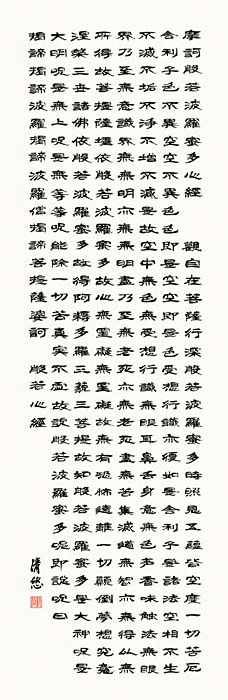 摩訶般若波羅蜜多心經 觀自在菩薩行深般若波羅蜜多時照見五蘊皆空度一切苦厄
舍利子色不異空空不異色色即是空空即是色受想行識亦復如是舍利子是諸法空相不生
不滅不垢不淨不增不減是故空中無色無受想行識無眼耳鼻舌身意無色聲香味觸法無眼
界乃至無意識界無無明亦無無明盡乃至無老死亦無老死盡無苦集滅道無智亦無得以無
所得故菩提薩埵依般若波羅蜜多故心無罣礙無罣礙故無有恐怖遠離一切顛倒夢想究竟
涅槃三世諸佛依般若波羅蜜多故得阿耨多羅三藐三菩提故知般若波羅蜜多是大神呪是
大明呪是無上呪是無等等呪能除一切苦真實不虛故說般若波羅蜜多呪即說呪曰
揭諦揭諦波羅揭諦波羅僧揭諦菩提薩婆訶 般若心經